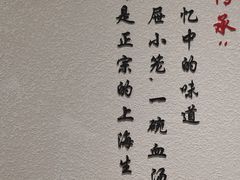 传承”
忆中的味道
屉小笼·一碗血汤
是正宗的上海生